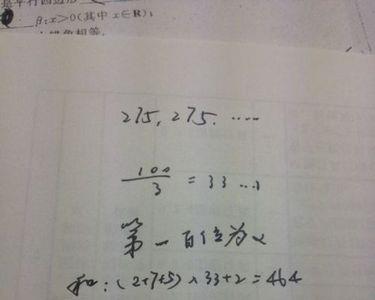 是平行四边形
β:x>0(其中 x∈R);
275,275.……
100/3 = 33…1
第一百位为2
和:(2+7+5)×33+2=464